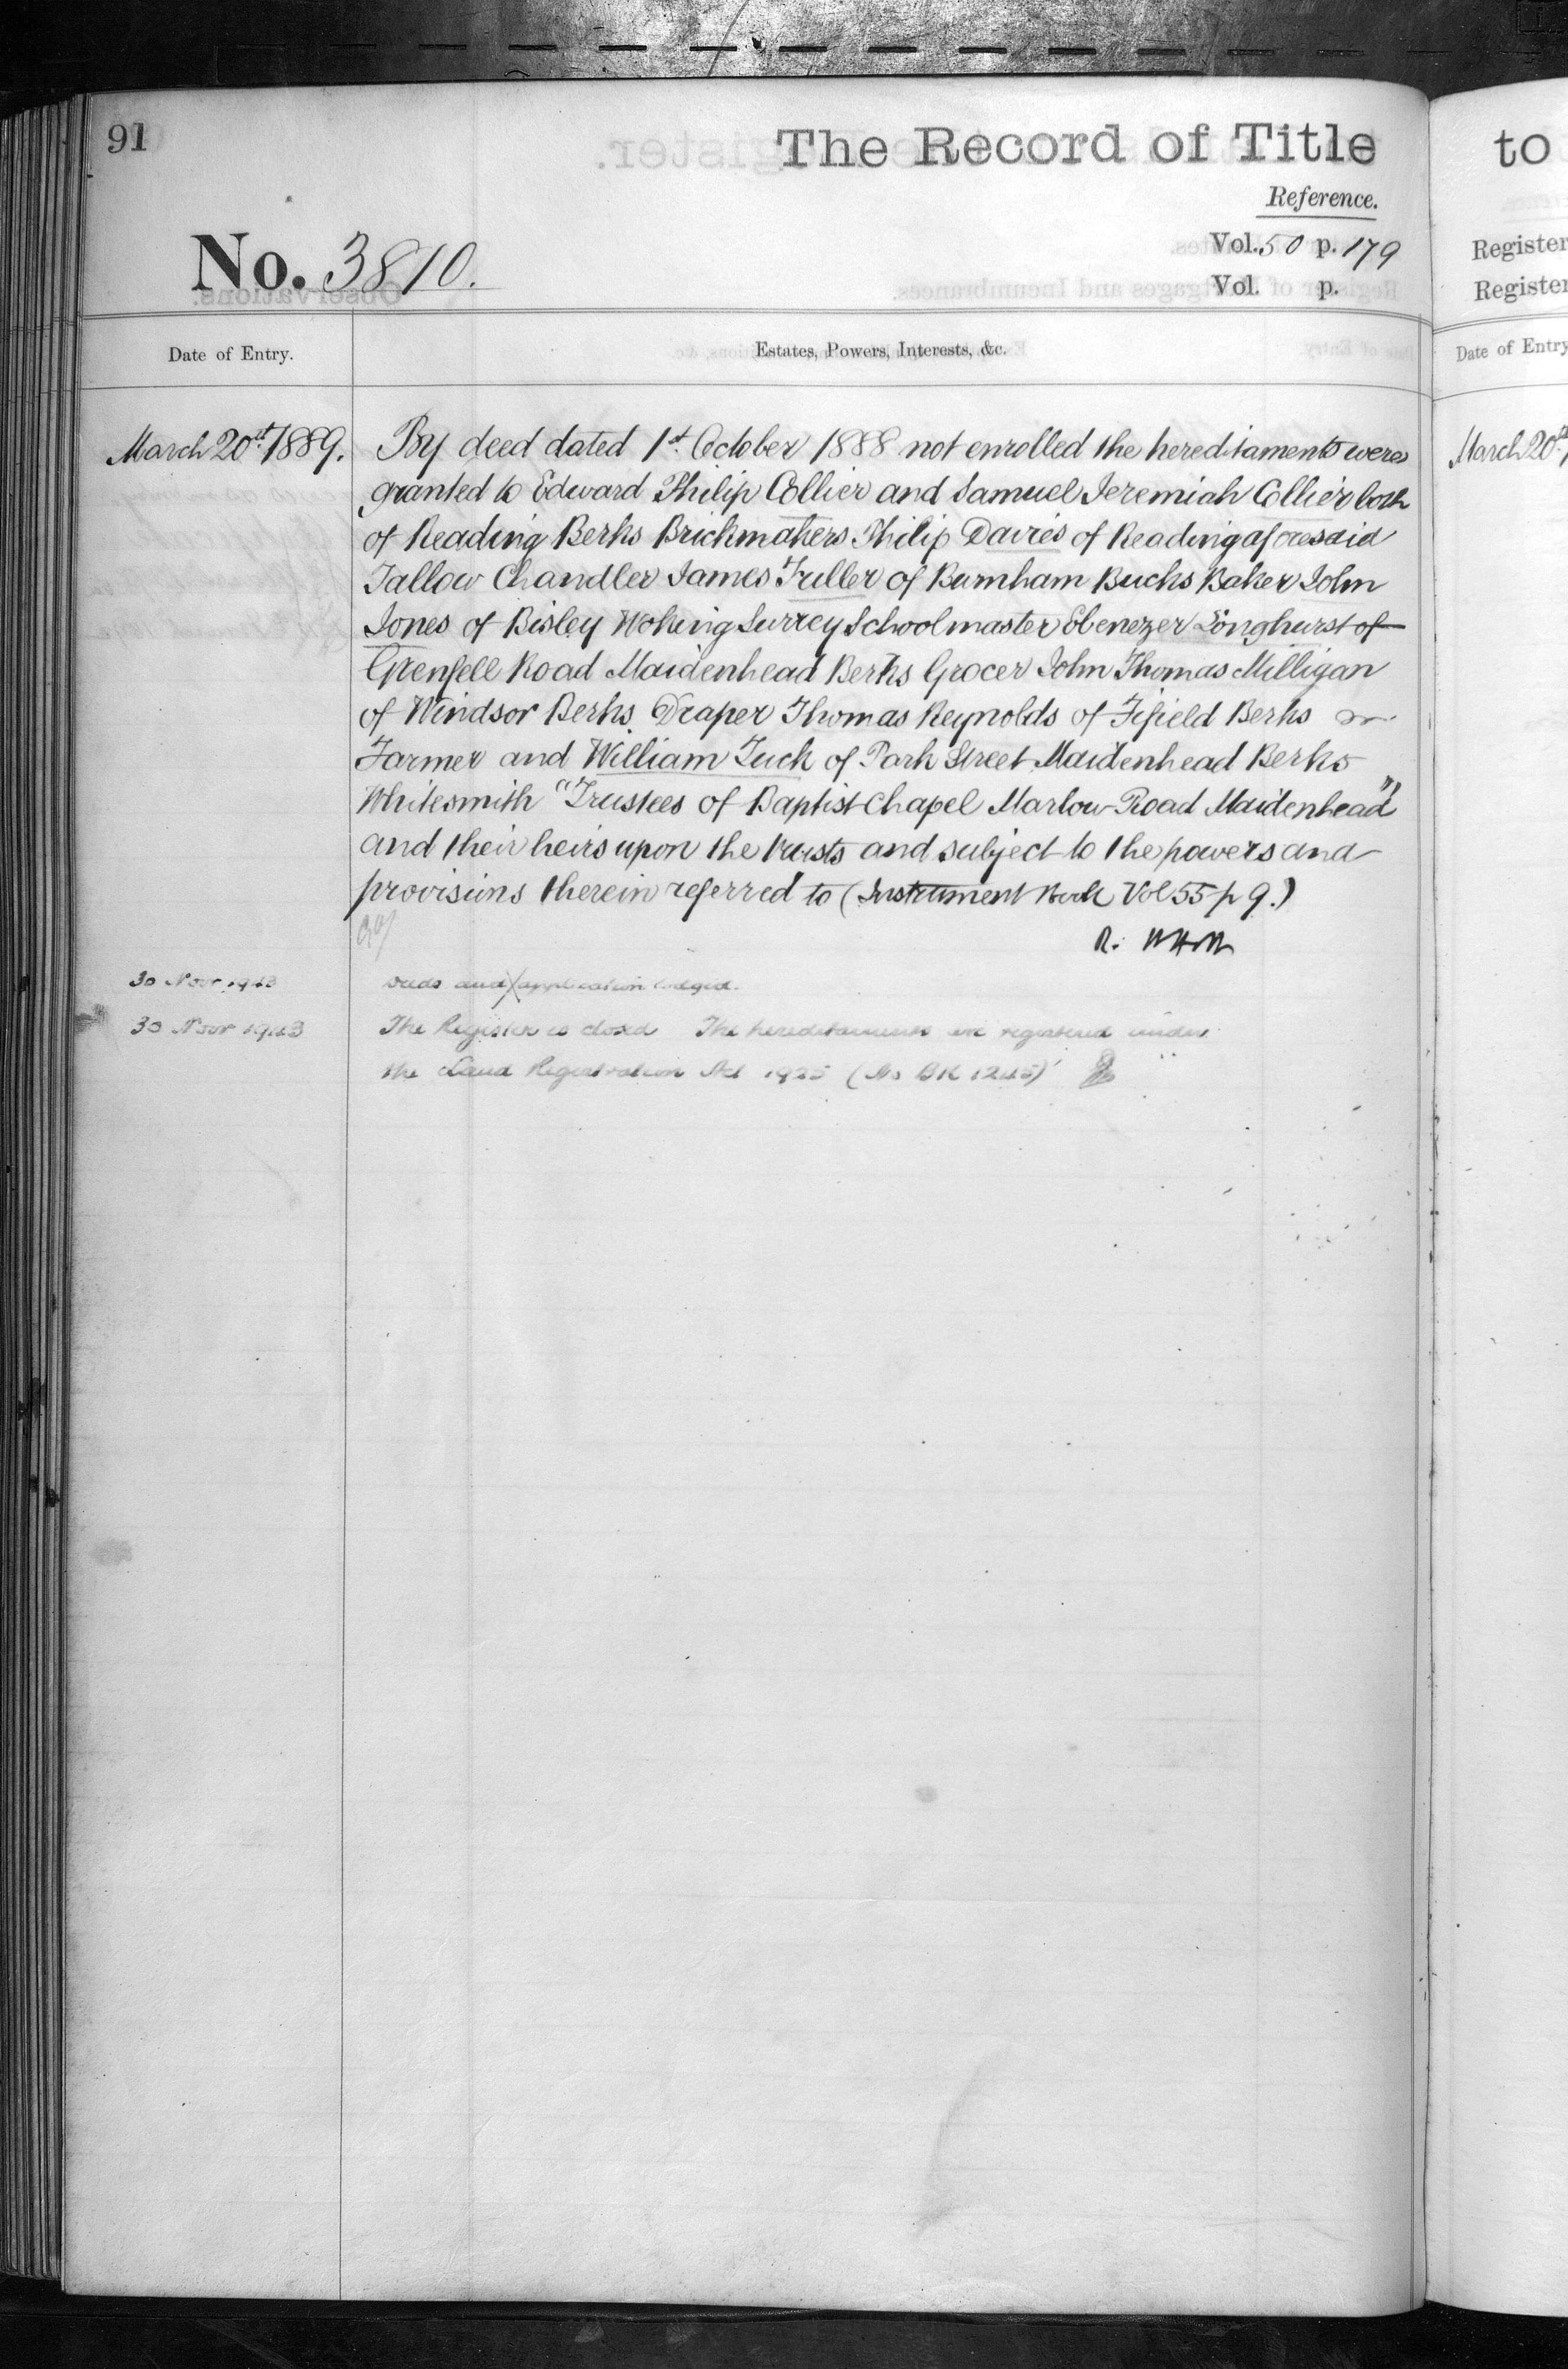 91
The Record of Title
Reference.
No. 3810.
Vol. 50 p. 179
Vol. p.
Date of Entry.
Estates, Powers, Interests, &c.
March 20st 1889.
By deed dated 1st October 1888 not enrolled the hereditaments were
granted to Edward Philip Collier and Samuel Jeremiah Collier both
of Reading Berks Brickmakers Philip Davies of Reading aforesaid
Tallow Chandler James Fuller of Burnham Bucks Baker John
Jones of Bisley Woking Surrey Schoolmaster Ebenezer Longhurst of
Grenfell Road Maidenhead Berks Grocer John Thomas Milligan
of Windsor Berks Draper Thomas Reynolds of Fifield Berks
Farmer and William Tuck of Park Street Maidenhead Berks
Whitesmith "Trustees of Baptist Chapel Marlow Road Maidenhead"
and their heirs upon the trusts and subject to the powers and
provisions therein referred to (Instrument Book Vol 55 p 9.)
R.
30 Novr 1943
and application lodged.
30 Novr 1943
The Register is closed The hereditaments are registered under
the Land Registration Act 1925 (No BK 1245)
to
Register
Register
Date of Entry
March 20st